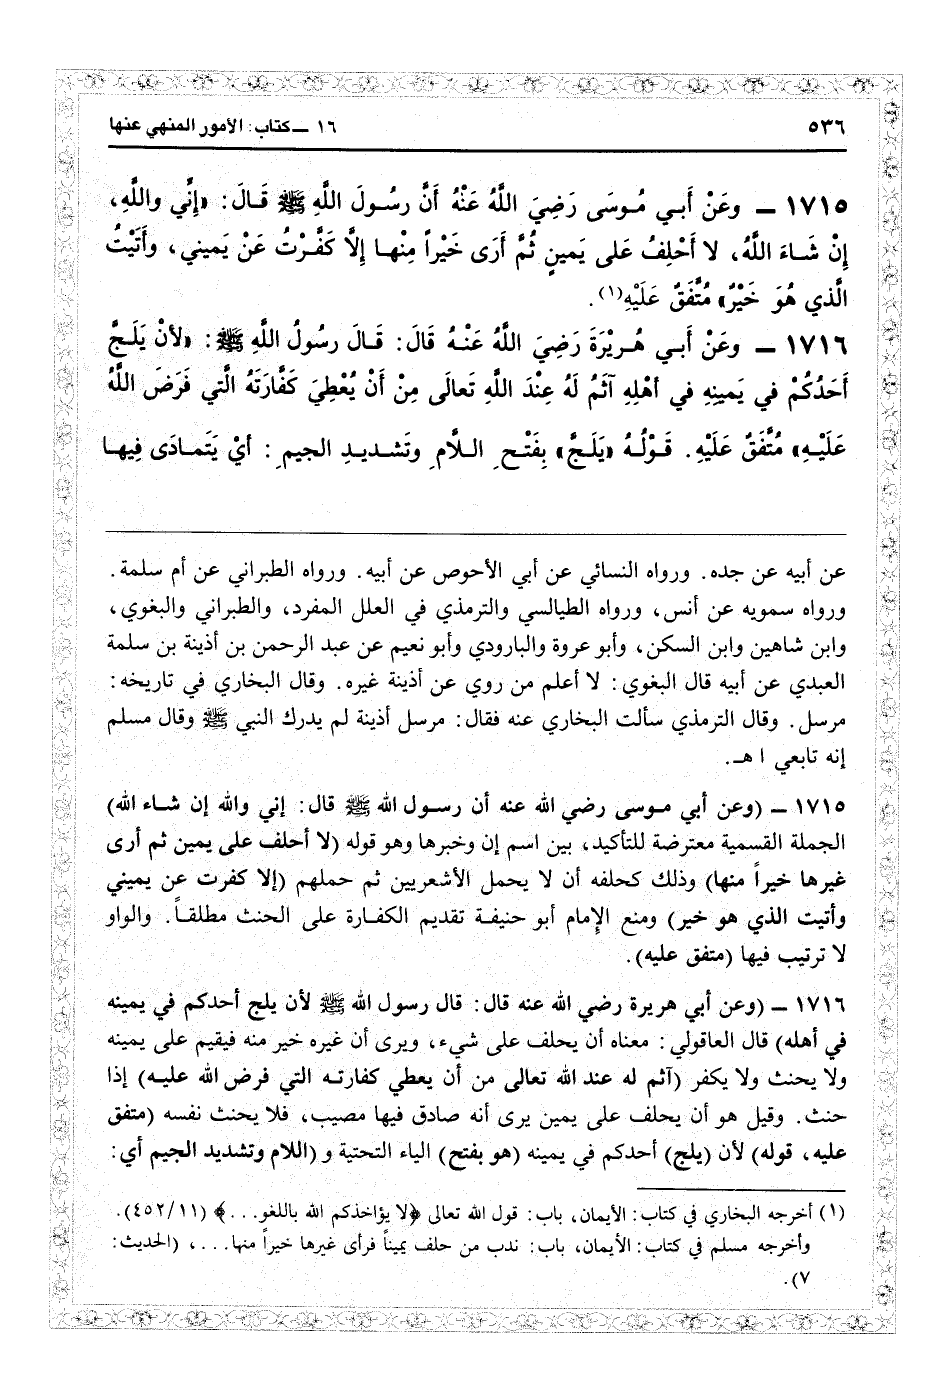 ٥٣٦
١٦ ــ كتاب: الأمور المنهي عنها
١٧١٥ ــ وعَنْ أَبي مُوسَى رَضِيَ اللَّهُ عَنْهُ أَنَّ رسُولَ اللَّهِ ﷺ قَالَ: «إنِّي واللَّهِ،
إنْ شَاءَ اللَّهُ، لا أَحْلِفُ عَلى يَمينٍ ثُمَّ أَرَى خَيْراً مِنْها إلَّا كَفَّرْتُ عَنْ يَميني، وأَتَيْتُ
الَّذي هُوَ خَيْرٌ» مُتَّفَقٌ عَلَيْهِ(١).
١٧١٦ ــ وعَنْ أَبي هُريْرَةَ رَضِيَ اللَّهُ عَنْهُ قَالَ: قَالَ رسُولُ اللَّهِ ﷺ: «لأنْ يَلَجَّ
أَحَدُكُمْ في يَمينِهِ في أهْلِهِ آثَمُ لَهُ عِنْدَ اللَّهِ تَعالَى مِنْ أَنْ يُعْطِيَ كَفَّارَتَهُ الَّتي فَرَضَ اللَّهُ
عَلَيْهِ» مُتَّفَقٌ عَلَيْهِ. قَوْلُهُ «يَلَجَّ» بِفَتْحِ اللَّامِ وتَشديدِ الجيمِ: أيْ يَتَمادَى فِيها
عن أبيه عن جده. ورواه النسائي عن أبي الأحوص عن أبيه. ورواه الطبراني عن أم سلمة.
ورواه سمويه عن أنس، ورواه الطيالسي والترمذي في العلل المفرد، والطبراني والبغوي،
وابن شاهين وابن السكن، وأبو عروة والبارودي وأبو نعيم عن عبد الرحمن بن أذينة بن سلمة
العبدي عن أبيه قال البغوي: لا أعلم من روي عن أذينة غيره. وقال البخاري في تاريخه:
مرسل. وقال الترمذي سألت البخاري عنه فقال: مرسل أذينة لم يدرك النبي ﷺ وقال مسلم
إنه تابعي ا هـ.
١٧١٥ ــ (وعن أبي موسى رضي الله عنه أن رسول الله ﷺ قال: إني والله إن شاء الله)
الجملة القسمية معترضة للتأكيد، بين اسم إن وخبرها وهو قوله (لا أحلف على يمين ثم أرى
غيرها خيراً منها) وذلك كحلفه أن لا يحمل الأشعريين ثم حملهم (إلا كفرت عن يميني
وأتيت الذي هو خير) ومنع الإمام أبو حنيفة تقديم الكفارة على الحنث مطلقاً. والواو
لا ترتيب فيها (متفق عليه).
١٧١٦ ــ (وعن أبي هريرة رضي الله عنه قال: قال رسول الله ﷺ لأن يلج أحدكم في يمينه
في أهله) قال العاقولي: معناه أن يحلف على شيء، ويرى أن غيره خير منه فيقيم على يمينه
ولا يحنث ولا يكفر (آثم له عند الله تعالى من أن يعطي كفارته التي فرض الله عليه) إذا
حنث. وقيل هو أن يحلف على يمين يرى أنه صادق فيها مصيب، فلا يحنث نفسه (متفق
عليه، قوله) لأن (يلج) أحدكم في يمينه (هو بفتح) الياء التحتية و (اللام وتشديد الجيم أي:
(١) أخرجه البخاري في كتاب: الأيمان، باب: قول الله تعالى ﴿لا يؤاخذكم الله باللغو...﴾ (٤٥٢/١١).
وأخرجه مسلم في كتاب: الأيمان، باب: ندب من حلف يميناً فرأى غيرها خيراً منها...، (الحديث:
٧).